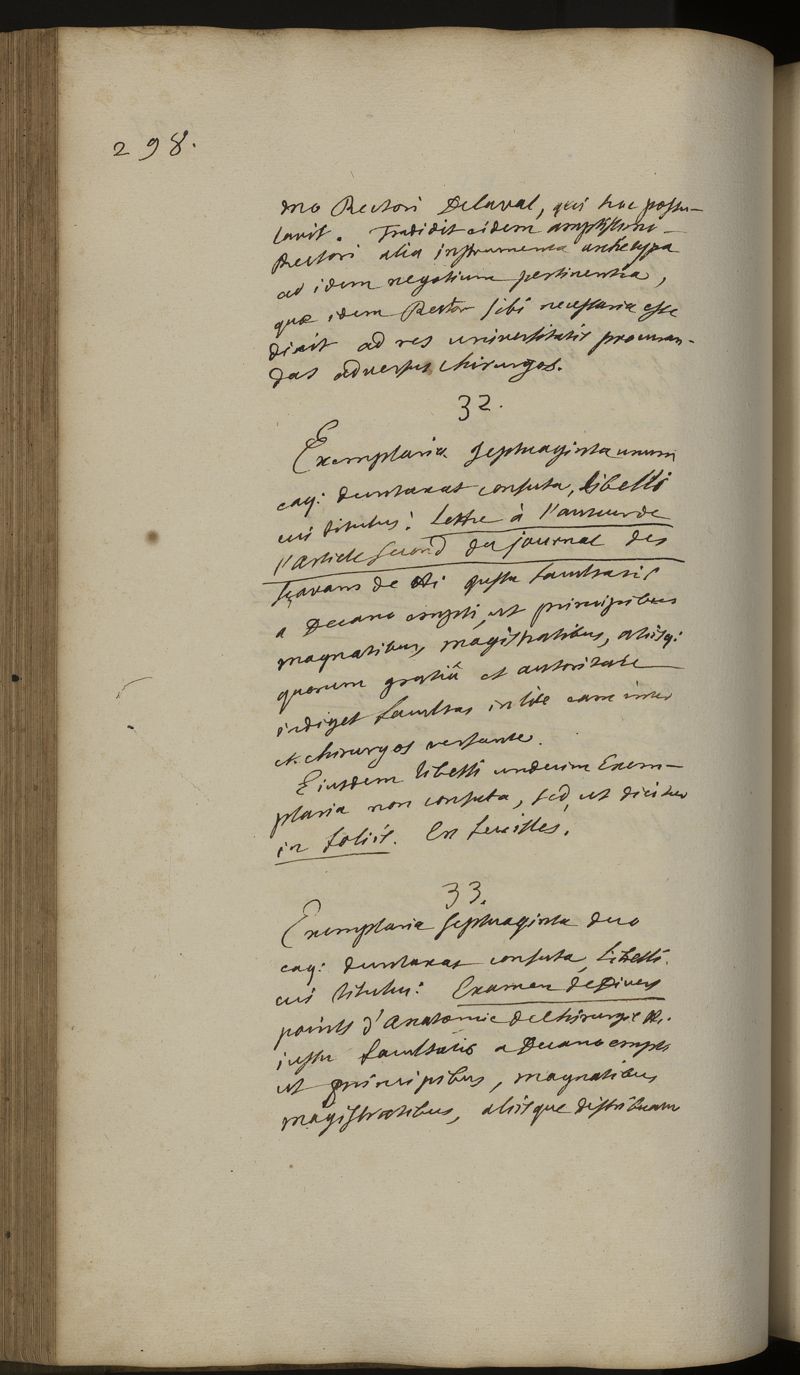 298.
mo Rectori Delaval, qui hac postu-
lavit. Tradidit eidem amplissimo
Rectori alia instrumenta archetypa
ad idem negotium pertinentia,
quæ idem Rector sibi necessaria esse
dixit ad res universitatis procuran-
das adversus chirurgos.
32.
Exemplaria septuaginta unum
eaq: duntaxat consuta, libelli
cui titulus: Lettre à l'auteur de
l'article second du journal des
sçavans de
jussu facultatis
a Decano empti, ut principibus
magnatibus, magistratibus, aliisq:
quorum gratiâ et autoritate
indiget facultas in lite eam inter
et chirurgos versante.
Ejusdem libelli undecim Exem-
plaria non consuta, sed, ut dicitur
in foliis. En feuilles.
33.
Exemplaria septuaginta duo
eaq: duntaxat consuta, libelli
cui titulus: Examen de Divers
points d'Anatomie de Chirurgie &.
jussu facultatis a Decano empti
ut principibus, magnatibus
magistratibus, aliisque distribuam